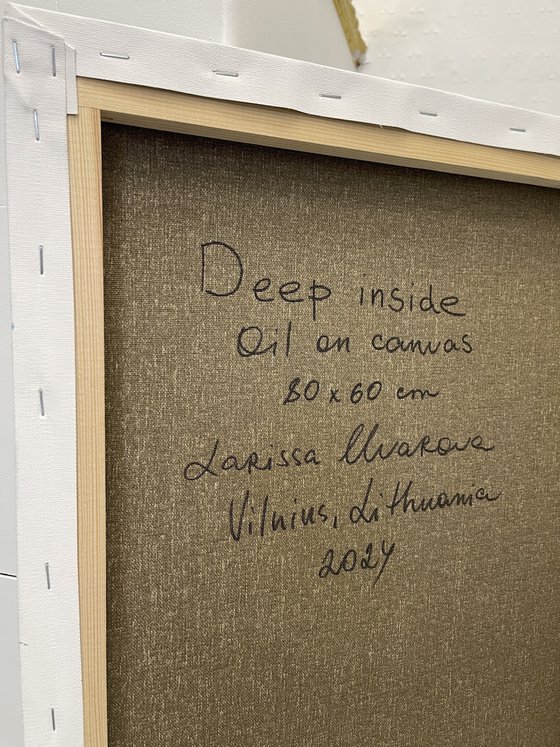 Deep inside
Oil on canvas
80 x 60 cm
Larissa Uvarova
Vilnius, Lithuania
2024